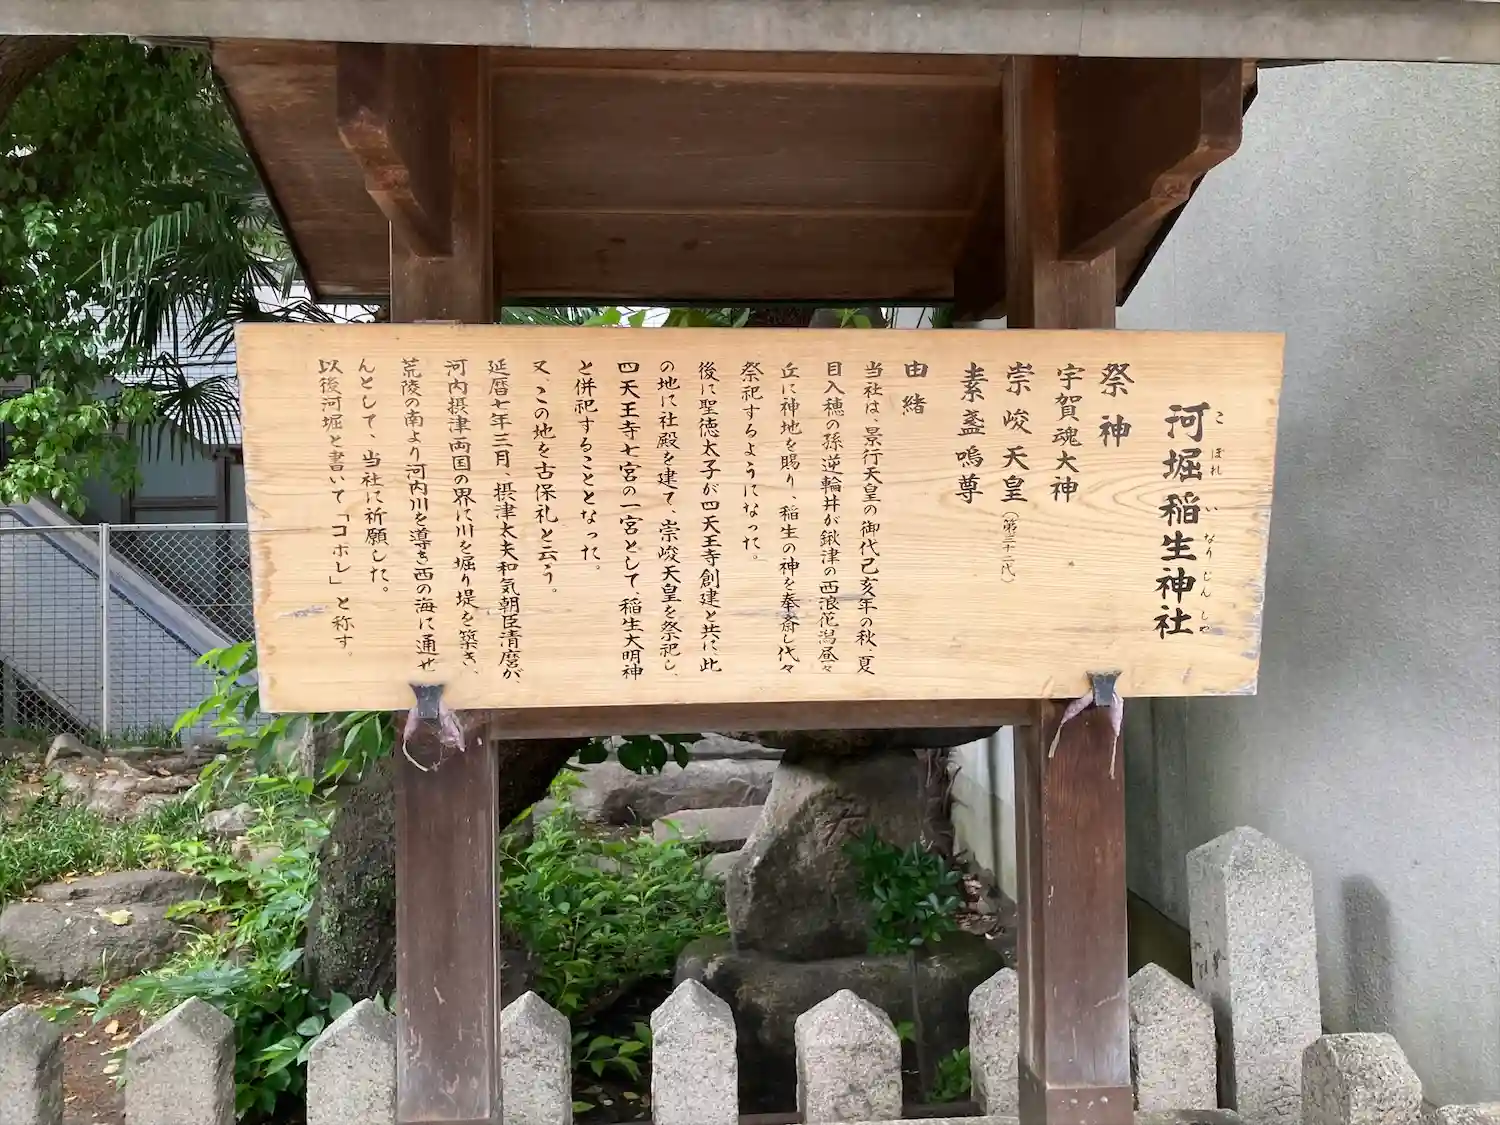 河堀稲生神社
こぼれいなりじんしゃ
祭神
宇賀魂大神
崇峻天皇（第三十二代）
素盞嗚尊
由緒
当社は、景行天皇の御代己亥年の秋、夏
目入穂の孫逆輪井が鍬津の西浪花潟昼々
丘に神地を賜り、稲生の神を奉斎し代々
祭祀するようになった。
後に聖徳太子が四天王寺創建と共に此
の地に社殿を建て、崇峻天皇を祭祀し、
四天王寺七宮の一宮として、稲生大明神
と併祀することとなった。
又、この地を古保礼と云う。
延暦七年三月、摂津太夫和気朝臣清麿が、
河内摂津両国の界に川を堀り堤を築き、
荒陵の南より河内川を導き西の海に通せ
んとして、当社に祈願した。
以後河堀と書いて「コホレ」と称す。